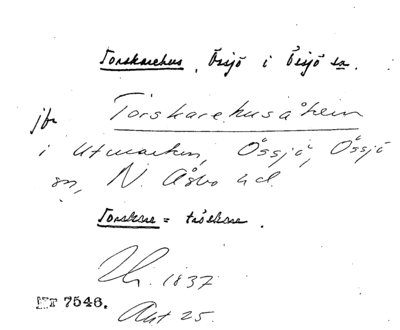 Torskarehus, Össjö i Össjö sn.
jfr Torskarehusåkern
i Utmarken, Össjö, Össjö
sn, N. Åsbo hd.
Torskare = tröskare.
1837
Akt 25.
MT 7546.